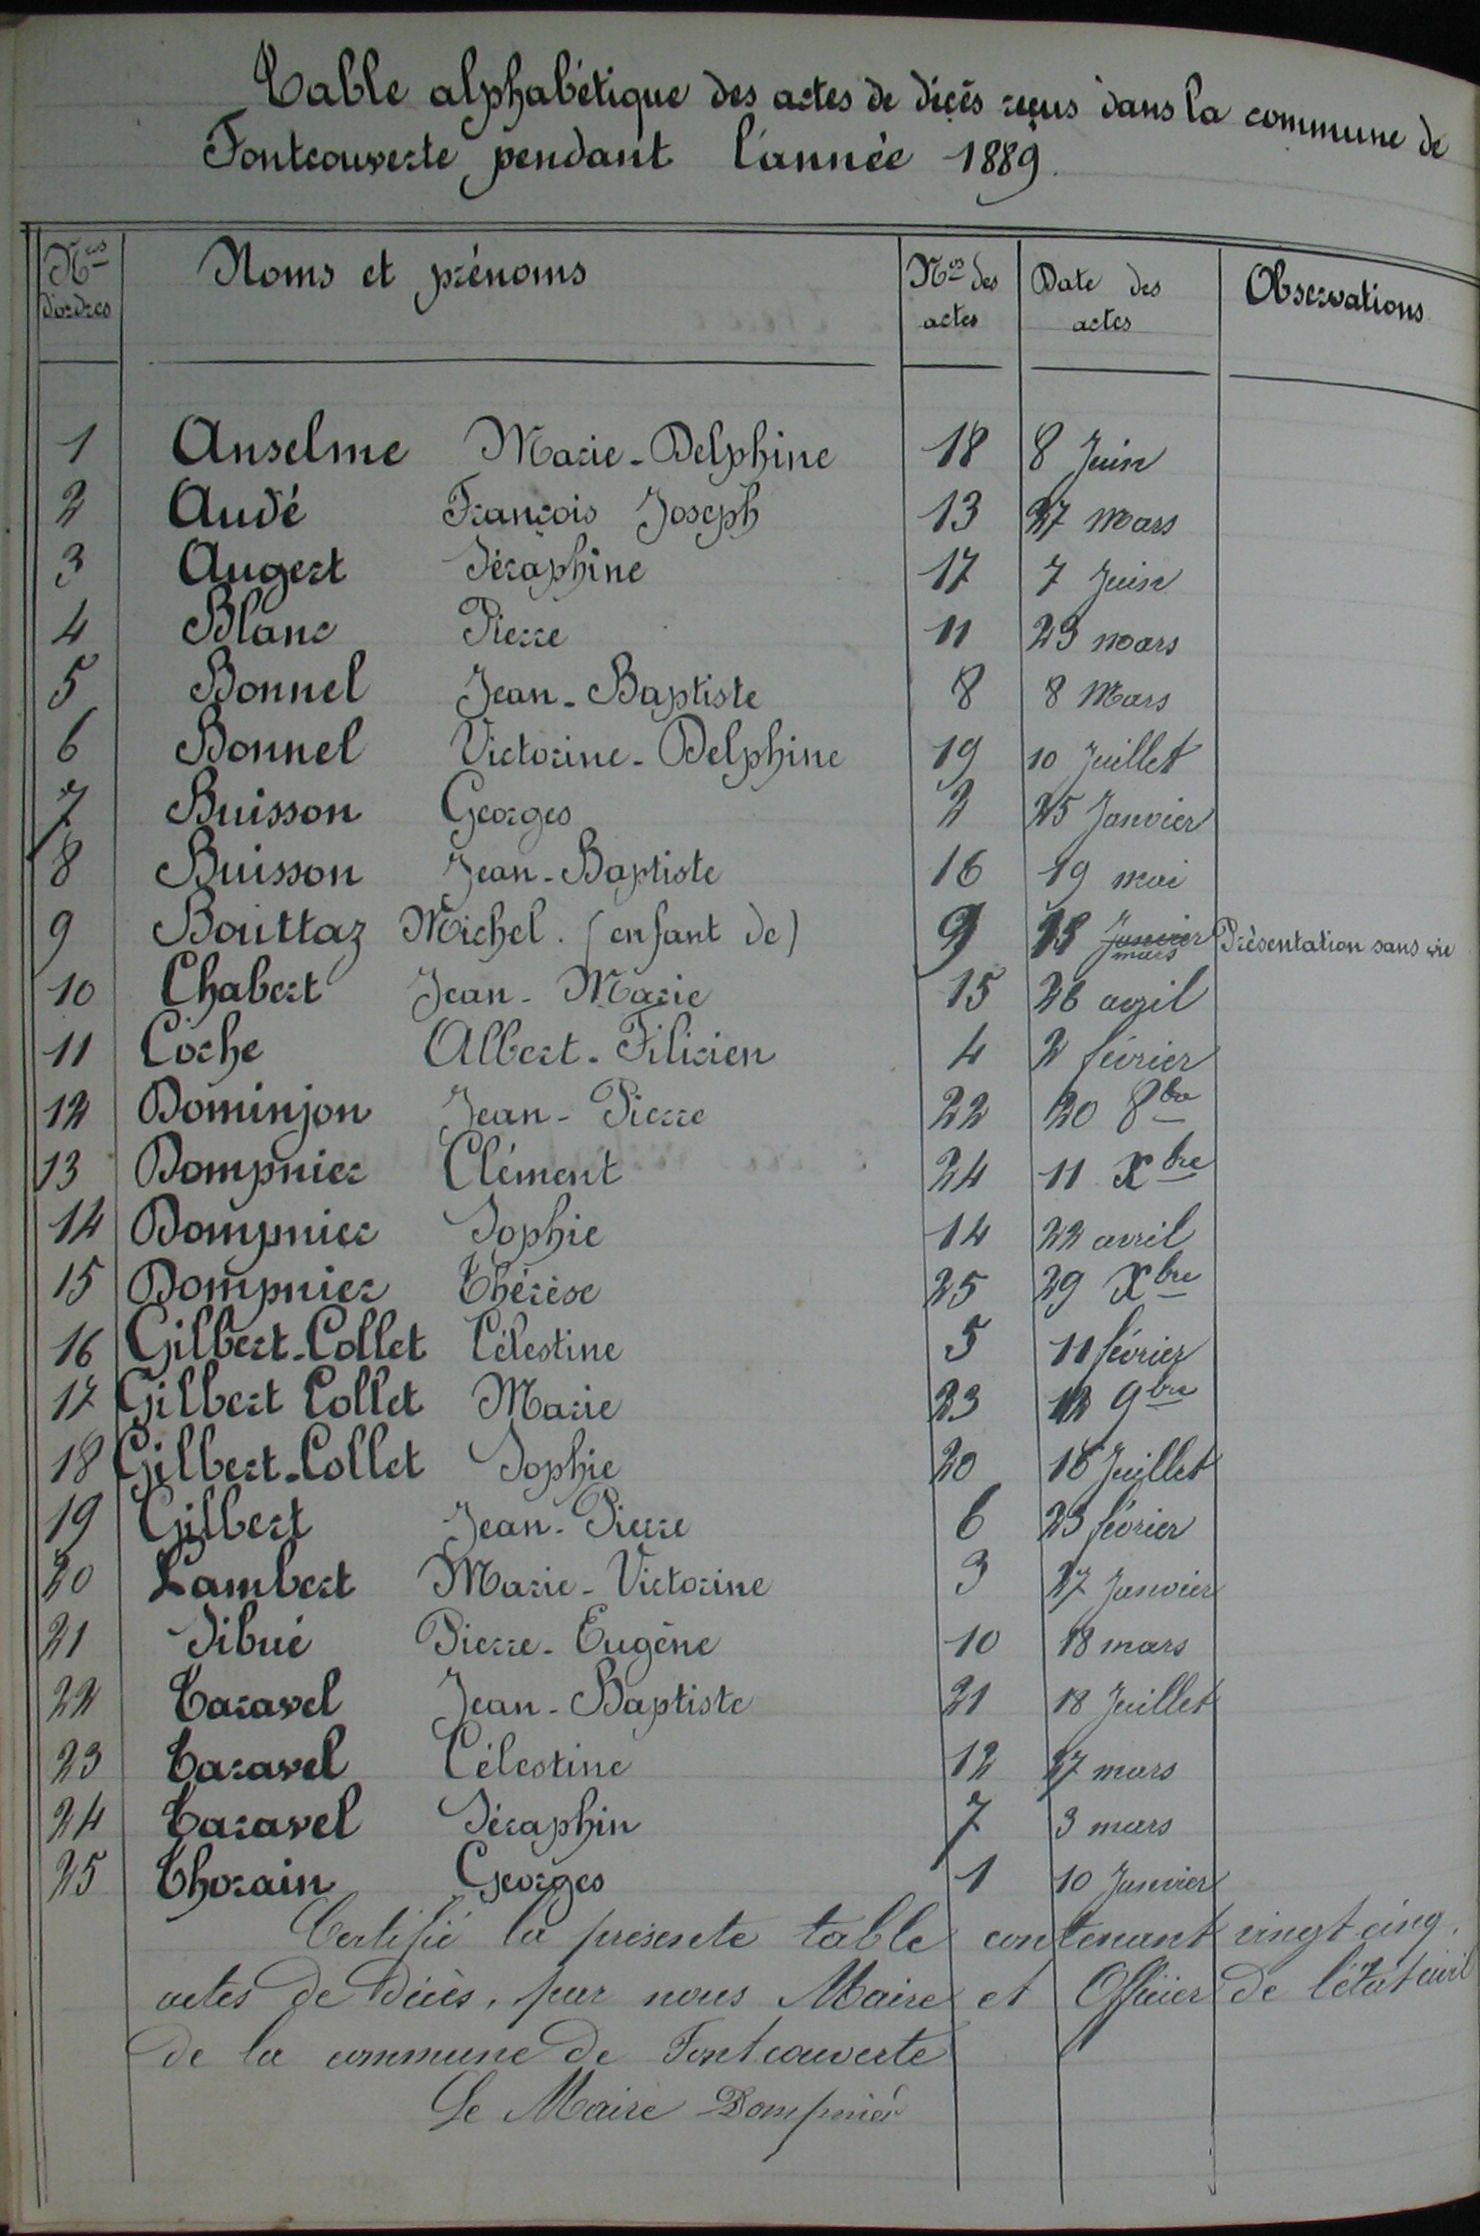 Table alphabétique des actes de décès reçus dans la commune de
Fontcouverte pendant l'année 1889.
Nos d'ordres Noms et prénoms Nos des actes Date des actes Observations
1 Anselme Marie-Delphine 18 8 Juin
2 Audé François Joseph 13 27 mars
3 Augert Séraphine 17 7 Juin
4 Blanc Pierre 11 23 mars
5 Bonnel Jean-Baptiste 8 8 Mars
6 Bonnel Victorine-Delphine 19 10 Juillet
7 Buisson Georges 2 25 Janvier
8 Buisson Jean-Baptiste 16 19 mai
9 Bouttaz Michel. (enfant de) 9 Janvier mars Présentation sans vie
10 Chabert Jean-Marie 15 26 avril
11 Coche Albert-Filicien 4 2 février
12 Dominjon Jean-Pierre 22 20 8bre
13 Dompnier Clément 24 11 Xbre
14 Dompnier Sophie 14 22 avril
15 Dompnier Thérèse 25 29 Xbre
16 Gilbert-Collet Célestine 5 11 février
17 Gilbert Collet Marie 23 12 9bre
18 Gilbert-Collet Sophie 20 16 Juillet
19 Gilbert Jean-Pierre 6 23 février
20 Lambert Marie-Victorine 3 27 Janvier
21 Sibué Pierre-Eugène 10 18 mars
22 Taravel Jean-Baptiste 21 18 Juillet
23 Taravel Célestine 12 27 mars
24 Taravel Séraphin 7 3 mars
25 Thorain Georges 1 10 Janvier
Certifié la présente table contenant vingt cinq.
actes de décès, par nous Maire et Officier de l'état civil
de la commune de Fontcouverte
Le Maire Dompnier